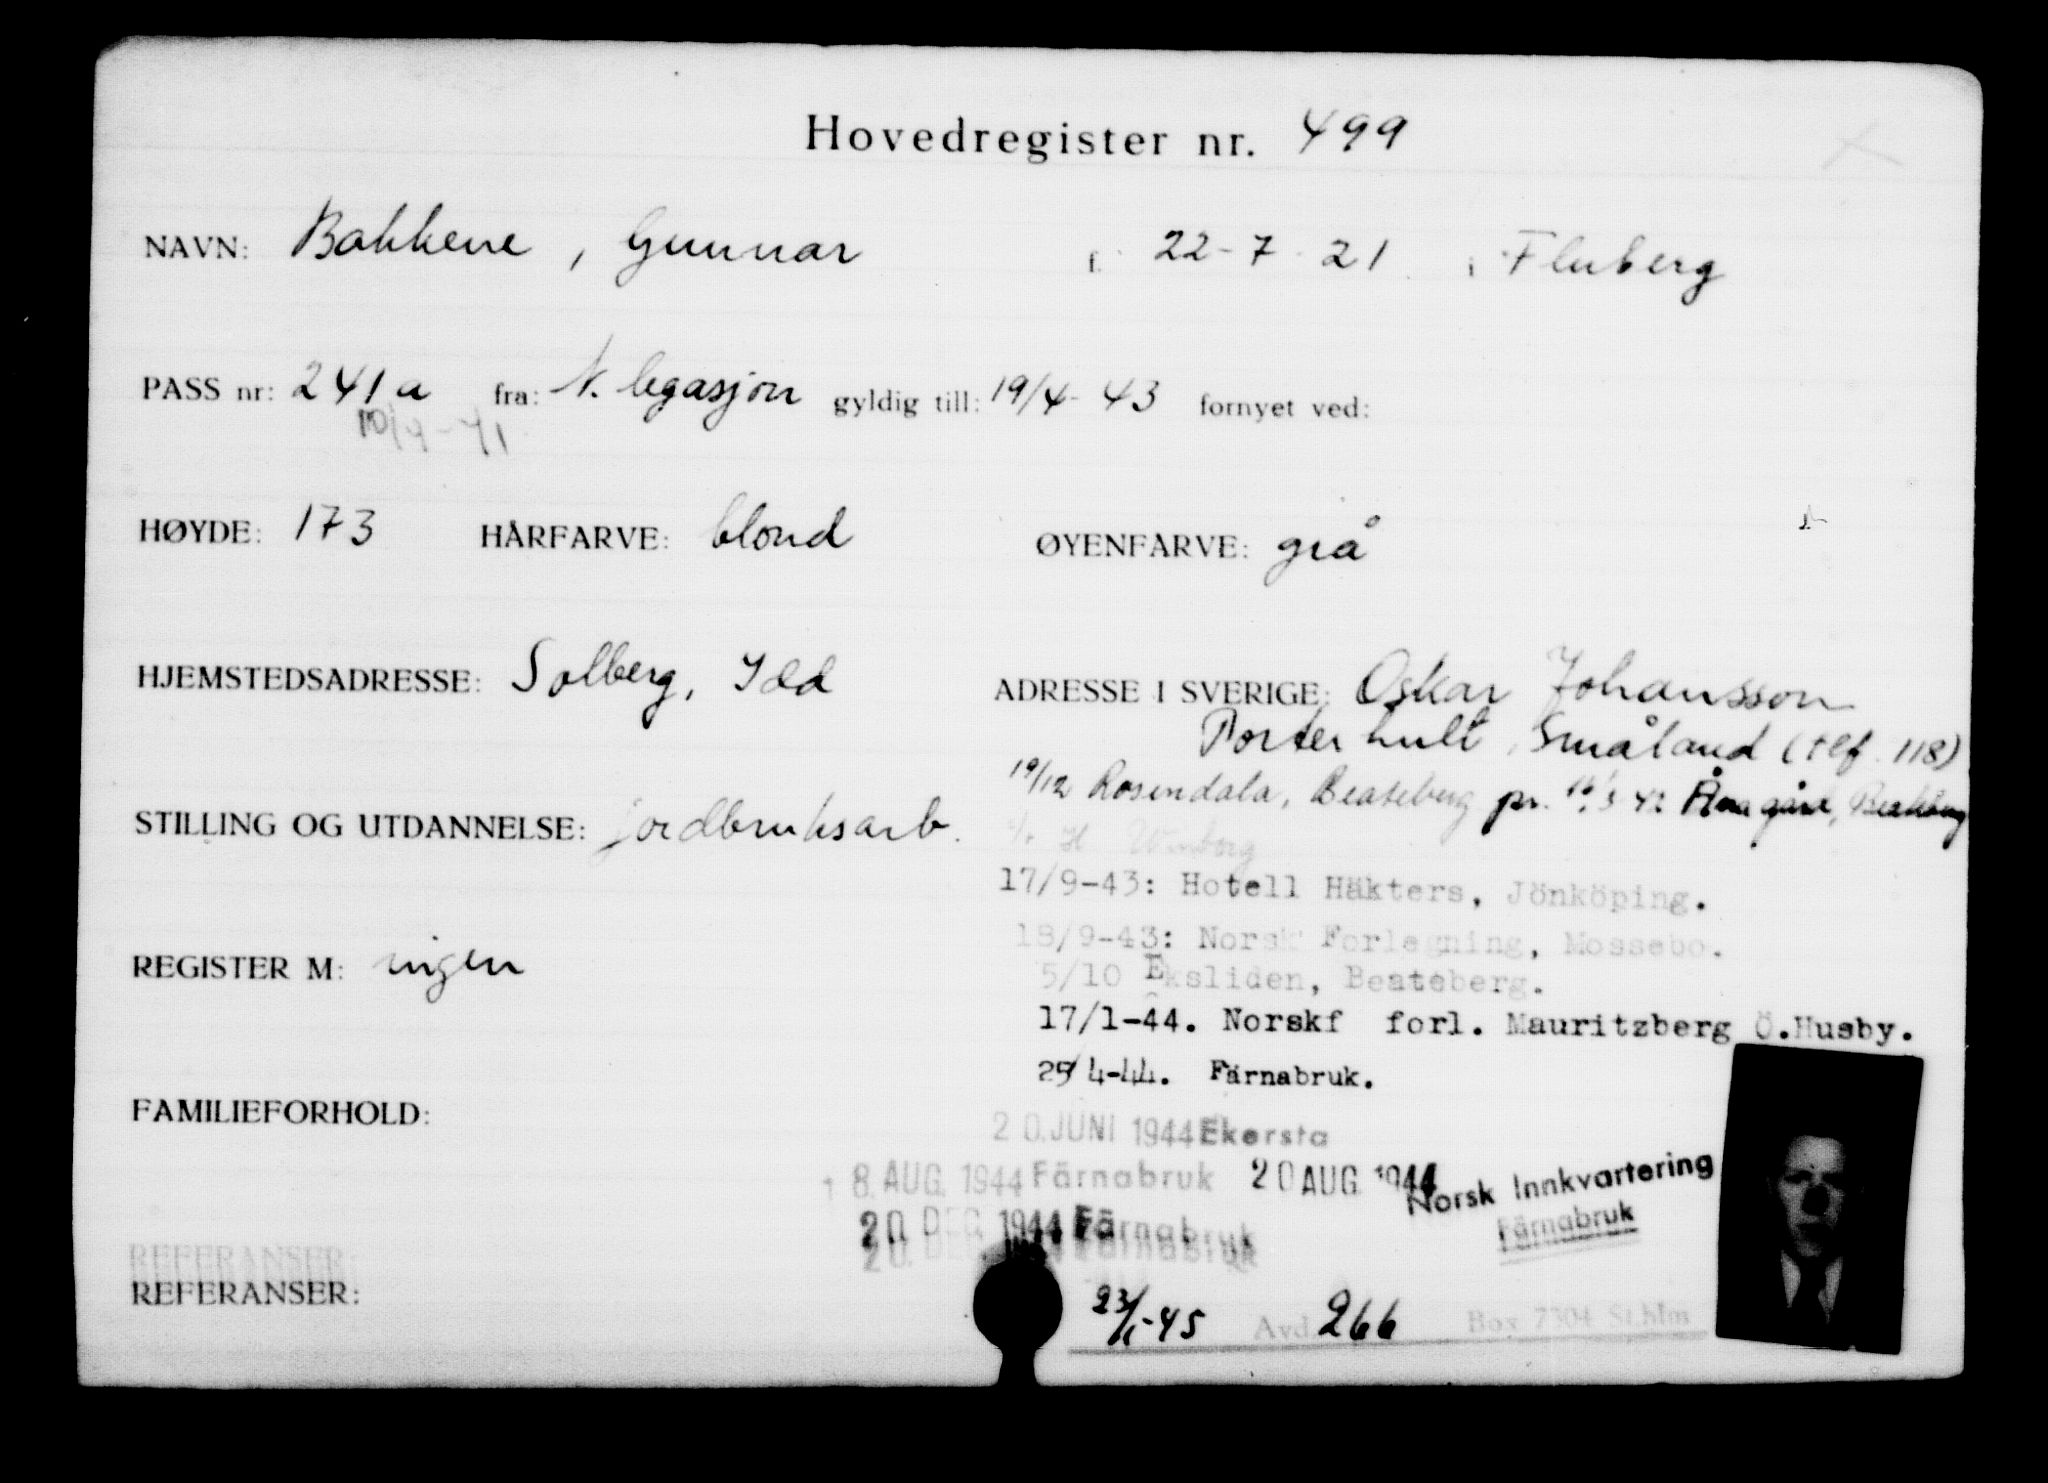 Hovedregister nr. 499
NAVN: Bakkene, Gunnar f. 22-7-21 i Fluberg
PASS nr: 241a fra: N. legasjon gyldig till: 19/4-43 fornyet ved:
HØYDE: 173 HÅRFARVE: blond ØYENFARVE: grå
HJEMSTEDSADRESSE: Solberg, Idd ADRESSE I SVERIGE: Oskar Johansson
Småland (tlf. 118)
19/12 Rosendala, Beateberg pr.
STILLING OG UTDANNELSE: jordbruksarb.
17/9-43: Hotell Häkters, Jönköping.
REGISTER M: ingen
18/9-43: Norsk Forlegning, Mossebo.
5/10 Eksliden, Beateberg.
17/1-44. Norskf forl. Mauritzberg Ö.Husby.
25/4-44. Färnabruk.
FAMILIEFORHOLD:
20. JUNI 1944 Ekersta
18. AUG. 1944 Färnabruk 20 AUG. 1944 Norsk Innkvartering
Färnabruk
20. DEC. 1944 Färnabruk
20. DEC. Färnabruk
REFERANSER:
REFERANSER:
23/1-45 Avd. 266 Box 7304 St.hlm